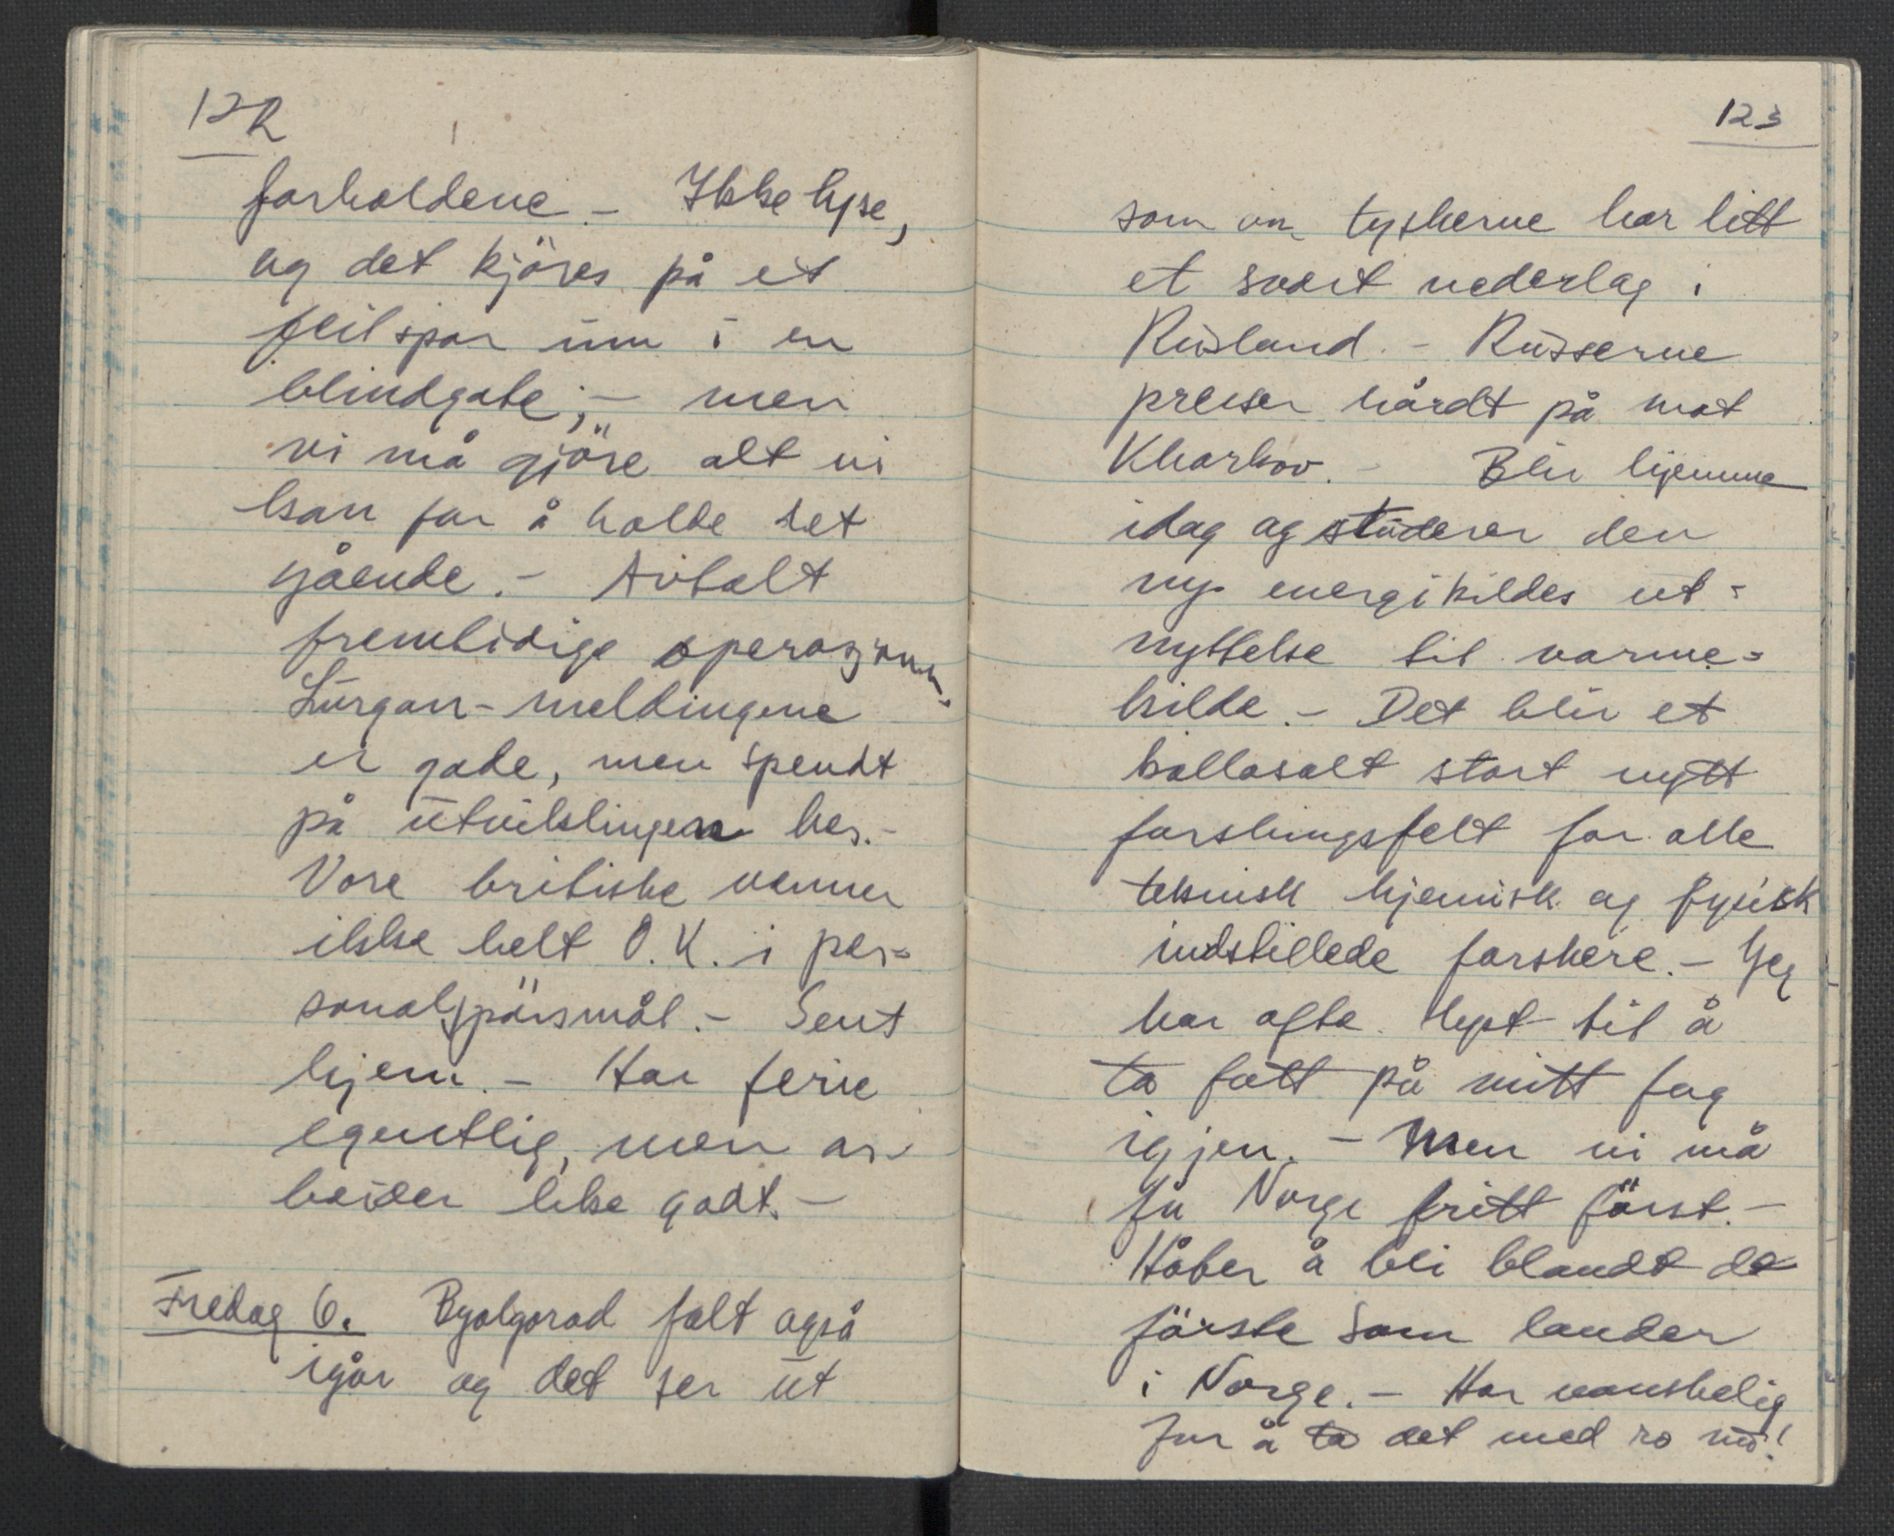 122
forholdene. – Ikke lyse,
og det kjöres på et
feilspor inn i en
blindgate; – men
vi må gjöre alt vi
kan for å holde det
gående. – Avtalt
fremtidige operasjoner.
Lurgan-meldingene
er gode, men spendt
på utviklingen her. –
Vore britiske venner
ikke helt O.K. i per=
sonalspörsmål. – Sent
hjem. – Har ferie
egentlig, men ar-
beider like godt. –
Fredag 6. Byolgorod falt også
igår og det ser ut
123
som om tyskerne har litt
et svært nederlag i
Rusland. – Russerne
preser hårdt på mot
Kharkov. – Blir hjemme
idag og studerer den
nye energikildes ut=
nyttelse til varme=
kilde. – Det blir et
kollosalt stort nytt
forskningsfelt for alle
teknisk kjemisk og fysisk
indstillede forskere. – Jeg
har ofte lyst til å
ta fatt på mitt fag
igjen. – Men vi må
få Norge fritt först. –
Håber å bli blandt de
förste som lander
i Norge. – Har vanskelig
for å ta det med ro nu!